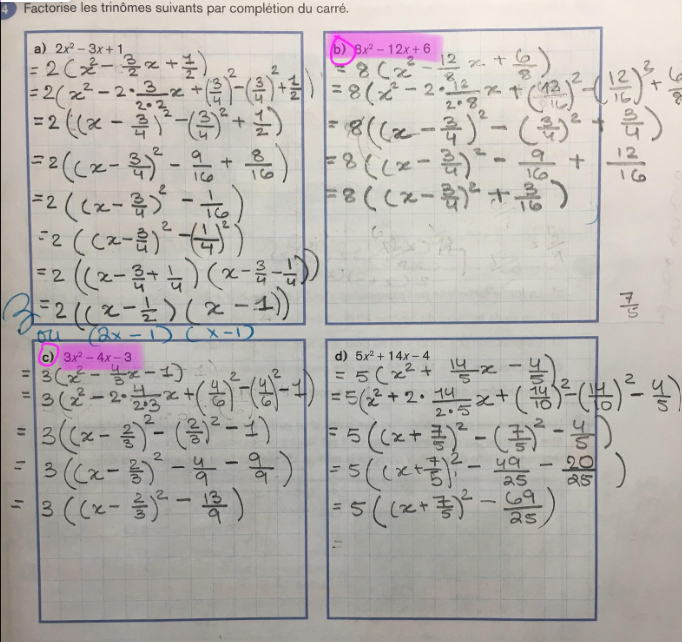 4 Factorise les trinômes suivants par complétion du carré.
a) 2x² – 3x + 1
= 2(x² – 3/2 x + 1/2)
= 2(x² – 2 · 3/(2·2) x + (3/4)² – (3/4)² + 1/2)
= 2((x – 3/4)² – (3/4)² + 1/2)
= 2((x – 3/4)² – 9/16 + 8/16)
= 2((x – 3/4)² – 1/16)
= 2((x – 3/4)² – (1/4)²)
= 2((x – 3/4 + 1/4)(x – 3/4 – 1/4))
= 2((x – 1/2)(x – 1))
ou (2x – 1)(x – 1)
b) 8x² – 12x + 6
= 8(x² – 12/8 x + 6/8)
= 8(x² – 2 · 12/(2·8) x + (12/16)² – (12/16)² + 6/8
= 8((x – 3/4)² – (3/4)² + 3/4)
= 8((x – 3/4)² – 9/16 + 12/16
= 8((x – 3/4)² + 3/16)
7/5
c) 3x² – 4x – 3
= 3(x² – 4/3 x – 1)
= 3(x² – 2 · 4/(2·3) x + (4/6)² – (4/6)² – 1)
= 3((x – 2/3)² – (2/3)² – 1)
= 3((x – 2/3)² – 4/9 – 9/9)
= 3((x – 2/3)² – 13/9)
d) 5x² + 14x – 4
= 5(x² + 14/5 x – 4/5)
= 5(x² + 2 · 14/(2·5) x + (14/10)² – (14/10)² – 4/5)
= 5((x + 7/5)² – (7/5)² – 4/5)
= 5((x + 7/5)² – 49/25 – 20/25)
= 5((x + 7/5)² – 69/25)
=